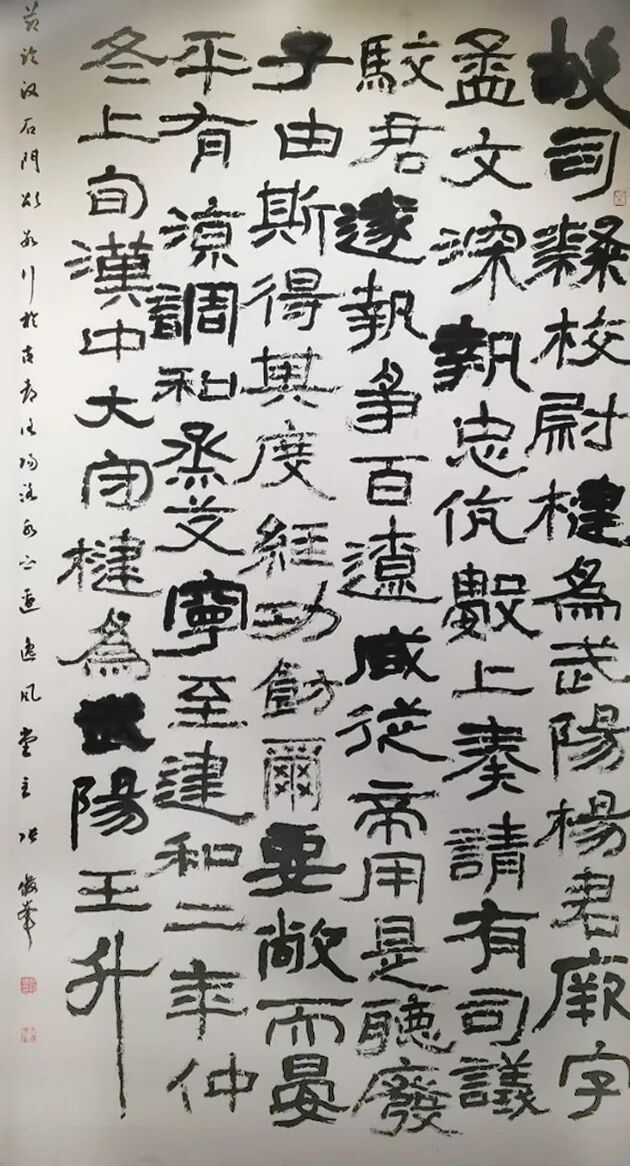 故司隸校尉楗為武陽楊君厥字
孟文深執忠伉數上奏請有司議
駮君遂執爭百遼咸從帝用是聽廢
子由斯得其度經功飭爾要敞而晏
平有涼調和烝艾寧至建和二年仲
冬上旬漢中大守楗為武陽王升
节临汉石門颂数行於古都洛阳洛水之边逸风堂主张俊峰